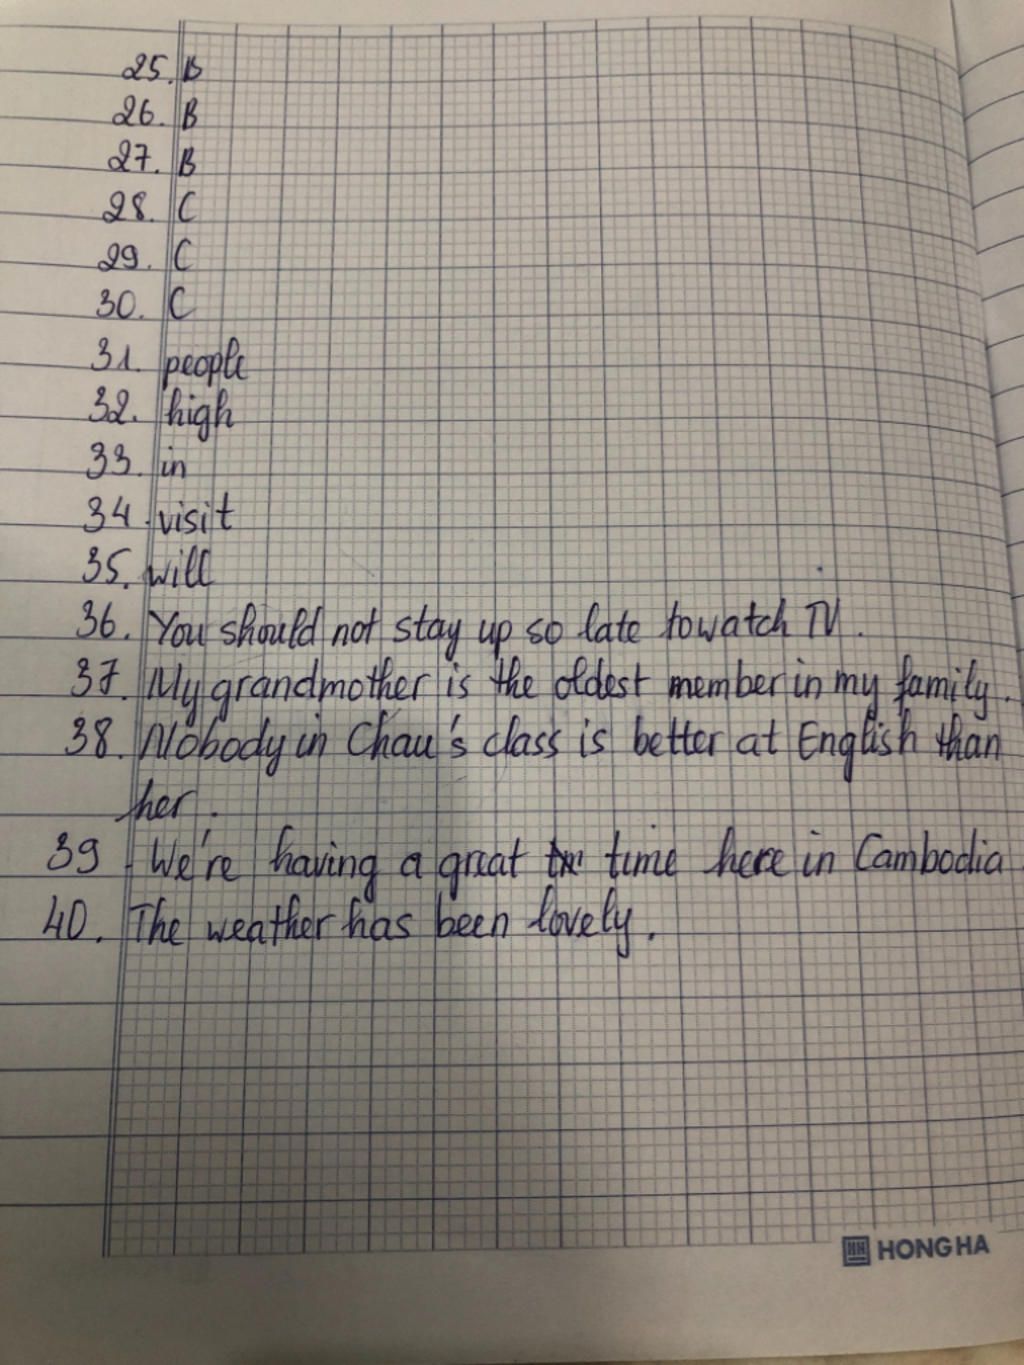 25. B
26. B
27. B
28. C
29. C
30. C
31. people
32. high
33. in
34. visit
35. will
36. You should not stay up so late to watch TV.
37. My grandmother is the oldest member in my family.
38. Nobody in Chau's class is better at English than
her.
39. We're having a great time here in Cambodia
40. The weather has been lovely.
HH HONG HA